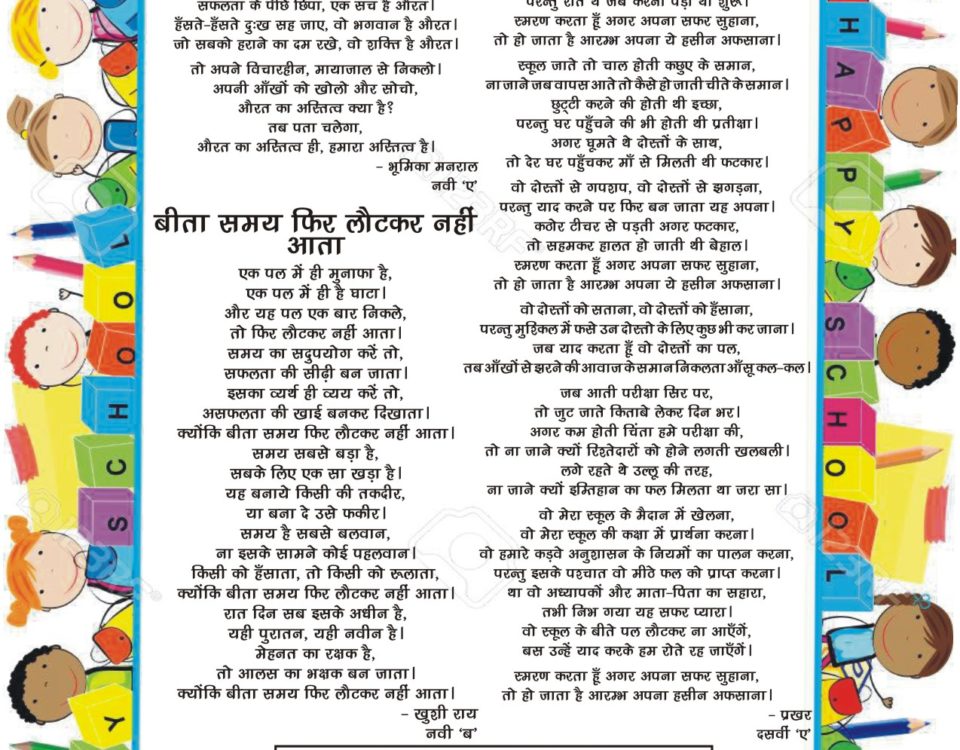 सफलता के पीछे छिपा, एक सच है औरत।
हँसते-हँसते दुःख सह जाए, वो भगवान है औरत।
जो सबको हराने का दम रखे, वो शक्ति है औरत।
तो अपने विचारहीन, मायाजाल से निकलो।
अपनी आँखों को खोलो और सोचो,
औरत का अस्तित्व क्या है?
तब पता चलेगा,
औरत का अस्तित्व ही, हमारा अस्तित्व है।
– भूमिका मनराल
नवी ‘ए’
बीता समय फिर लौटकर नहीं
आता
एक पल में ही मुनाफा है,
एक पल में ही है घाटा।
और यह पल एक बार निकले,
तो फिर लौटकर नहीं आता।
समय का सदुपयोग करें तो,
सफलता की सीढ़ी बन जाता।
इसका व्यर्थ ही व्यय करें तो,
असफलता की खाई बनकर दिखाता।
क्योंकि बीता समय फिर लौटकर नहीं आता।
समय सबसे बड़ा है,
सबके लिए एक सा खड़ा है।
यह बनाये किसी की तकदीर,
या बना दे उसे फकीर।
समय है सबसे बलवान,
ना इसके सामने कोई पहलवान।
किसी को हँसाता, तो किसी को रूलाता,
क्योंकि बीता समय फिर लौटकर नहीं आता।
रात दिन सब इसके अधीन है,
यही पुरातन, यही नवीन है।
मेहनत का रक्षक है,
तो आलस का भक्षक बन जाता।
क्योंकि बीता समय फिर लौटकर नहीं आता।
– खुशी राय
नवी ‘ब’
परन्तु रात थे जब करना पड़ा था शुरू।
स्मरण करता हूँ अगर अपना सफर सुहाना,
तो हो जाता है आरम्भ अपना ये हसीन अफसाना।
स्कूल जाते तो चाल होती कछुए के समान,
ना जाने जब वापस आते तो कैसे हो जाती चीते के समान।
छुट्टी करने की होती थी इच्छा,
परन्तु घर पहुँचने की भी होती थी प्रतीक्षा।
अगर घूमते थे दोस्तों के साथ,
तो देर घर पहुँचकर माँ से मिलती थी फटकार।
वो दोस्तों से गपशप, वो दोस्तों से झगड़ना,
परन्तु याद करने पर फिर बन जाता यह अपना।
कठोर टीचर से पड़ती अगर फटकार,
तो सहमकर हालत हो जाती थी बेहाल।
स्मरण करता हूँ अगर अपना सफर सुहाना,
तो हो जाता है आरम्भ अपना ये हसीन अफसाना।
वो दोस्तों को सताना, वो दोस्तों को हँसाना,
परन्तु मुश्किल में फसे उन दोस्तो के लिए कुछ भी कर जाना।
जब याद करता हूँ वो दोस्तों का पल,
तब आँखों से झरने की आवाज के समान निकलता आँसू कल-कल।
जब आती परीक्षा सिर पर,
तो जुट जाते किताबे लेकर दिन भर।
अगर कम होती चिंता हमे परीक्षा की,
तो ना जाने क्यों रिश्तेदारों को होने लगती खलबली।
लगे रहते थे उल्लू की तरह,
ना जाने क्यों इम्तिहान का फल मिलता था जरा सा।
वो मेरा स्कूल के मैदान में खेलना,
वो मेरा स्कूल की कक्षा में प्रार्थना करना।
वो हमारे कड़वे अनुशासन के नियमों का पालन करना,
परन्तु इसके पश्चात वो मीठे फल को प्राप्त करना।
था वो अध्यापकों और माता-पिता का सहारा,
तभी निभ गया यह सफर प्यारा।
वो स्कूल के बीते पल लौटकर ना आएँगें,
बस उन्हें याद करके हम रोते रह जाएँगें।
स्मरण करता हूँ अगर अपना सफर सुहाना,
तो हो जाता है आरम्भ अपना हसीन अफसाना।
– प्रखर
दसवीं ‘ए’
HAPPY SCHOOL
LOOHCS Y